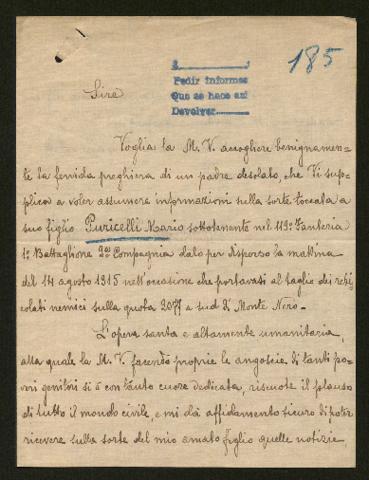 185
S
Pedir informes
Que se hace así
Devolver
Sire
Voglia la M. V. accogliere benignamen-
te la fervida preghiera di un padre desolato, che Vi sup-
plica a voler assumere informazioni sulla sorte toccata a
suo figlio Puricelli Mario sottotenente nel 119º Fanteria
1º Battaglione 2ª Compagnia dato per disperso la mattina
del 14 agosto 1915 nell'occasione che portavasi al taglio dei reti-
colati nemici sulla quota 2077 a sud di Monte Nero.
L'opera santa e altamente umanitaria,
alla quale la M. V. facendo proprie le angoscie di tanti po-
veri genitori si è con tanto cuore dedicata, riscuote il plauso
di tutto il mondo civile, e mi dà affidamento sicuro di poter
ricevere sulla sorte del mio amato figlio quelle notizie,